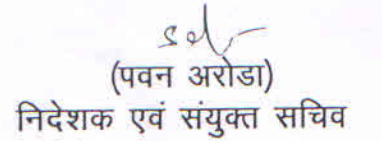 sd/-
(पवन अरोडा)
निदेशक एवं संयुक्त सचिव